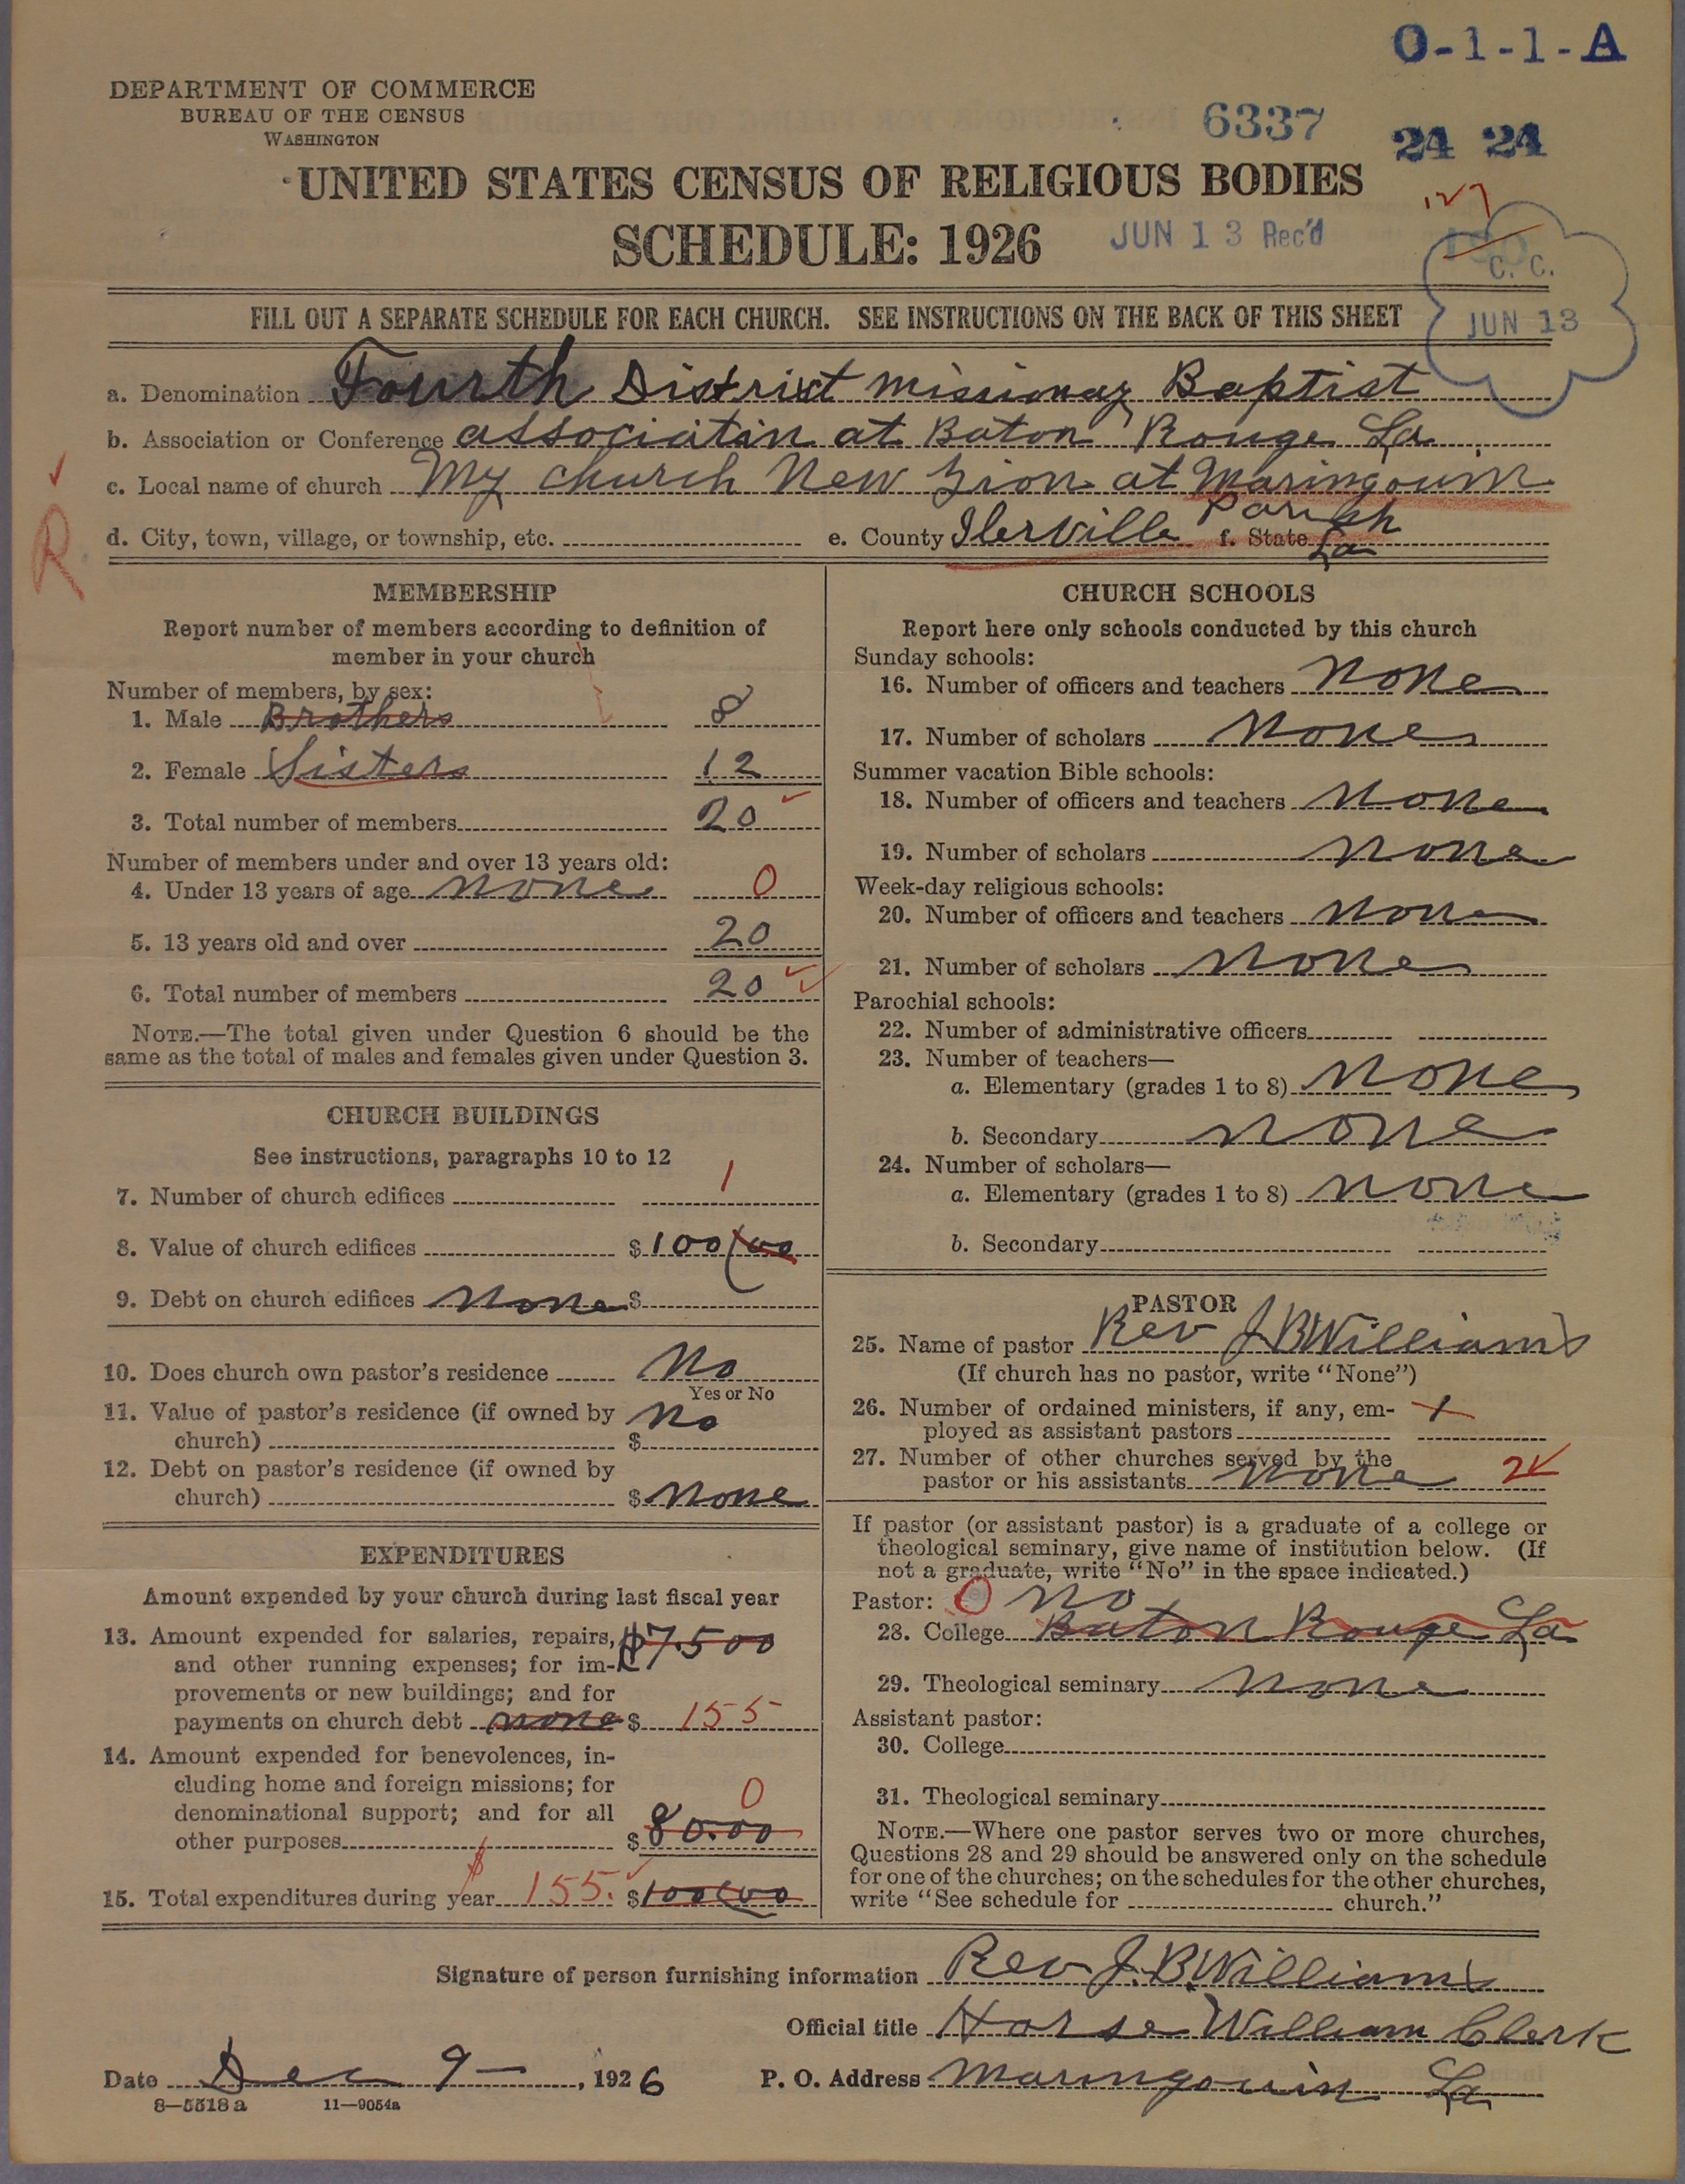 O-1-1-A
DEPARTMENT OF COMMERCE
BUREAU OF THE CENSUS
WASHINGTON
6337
24 24
UNITED STATES CENSUS OF RELIGIOUS BODIES
127
SCHEDULE: 1926
JUN 13 Rec'd
C. C.
JUN 13
FILL OUT A SEPARATE SCHEDULE FOR EACH CHURCH. SEE INSTRUCTIONS ON THE BACK OF THIS SHEET
a. Denomination Fourth District missionary Baptist
b. Association or Conference association at Baton Rouge La
c. Local name of church My church New Zion at Maringouin
d. City, town, village, or township, etc. e. County Iberville Parish f. State La
R
MEMBERSHIP
Report number of members according to definition of
member in your church
Number of members, by sex:
1. Male Brothers 8
2. Female Sisters 12
3. Total number of members 20
Number of members under and over 13 years old:
4. Under 13 years of age none 0
5. 13 years old and over 20
6. Total number of members 20
NOTE.—The total given under Question 6 should be the
same as the total of males and females given under Question 3.
CHURCH BUILDINGS
See instructions, paragraphs 10 to 12
7. Number of church edifices 1
8. Value of church edifices $100 00
9. Debt on church edifices none $
10. Does church own pastor's residence No
Yes or No
11. Value of pastor's residence (if owned by no
church) $
12. Debt on pastor's residence (if owned by
church) $ none
EXPENDITURES
Amount expended by your church during last fiscal year
13. Amount expended for salaries, repairs, $75 00
and other running expenses; for im-
provements or new buildings; and for
payments on church debt none $ 155
14. Amount expended for benevolences, in-
cluding home and foreign missions; for
denominational support; and for all 0
other purposes $80.00
15. Total expenditures during year $155. $100 00
CHURCH SCHOOLS
Report here only schools conducted by this church
Sunday schools:
16. Number of officers and teachers none
17. Number of scholars none
Summer vacation Bible schools:
18. Number of officers and teachers none
19. Number of scholars none
Week-day religious schools:
20. Number of officers and teachers none
21. Number of scholars none
Parochial schools:
22. Number of administrative officers
23. Number of teachers—
a. Elementary (grades 1 to 8) none
b. Secondary none
24. Number of scholars—
a. Elementary (grades 1 to 8) none
b. Secondary
PASTOR
25. Name of pastor Rev J B Williams
(If church has no pastor, write "None")
26. Number of ordained ministers, if any, em-
ployed as assistant pastors
27. Number of other churches served by the
pastor or his assistants none 2
If pastor (or assistant pastor) is a graduate of a college or
theological seminary, give name of institution below. (If
not a graduate, write "No" in the space indicated.)
Pastor: 0 no
28. College Baton Rouge La
29. Theological seminary none
Assistant pastor:
30. College
31. Theological seminary
NOTE.—Where one pastor serves two or more churches,
Questions 28 and 29 should be answered only on the schedule
for one of the churches; on the schedules for the other churches,
write "See schedule for church."
Signature of person furnishing information Rev J. B. Williams
Official title Horse William Clerk
Date Dec 9 , 1926 P. O. Address Maringouin La
8—5518a 11—9054a